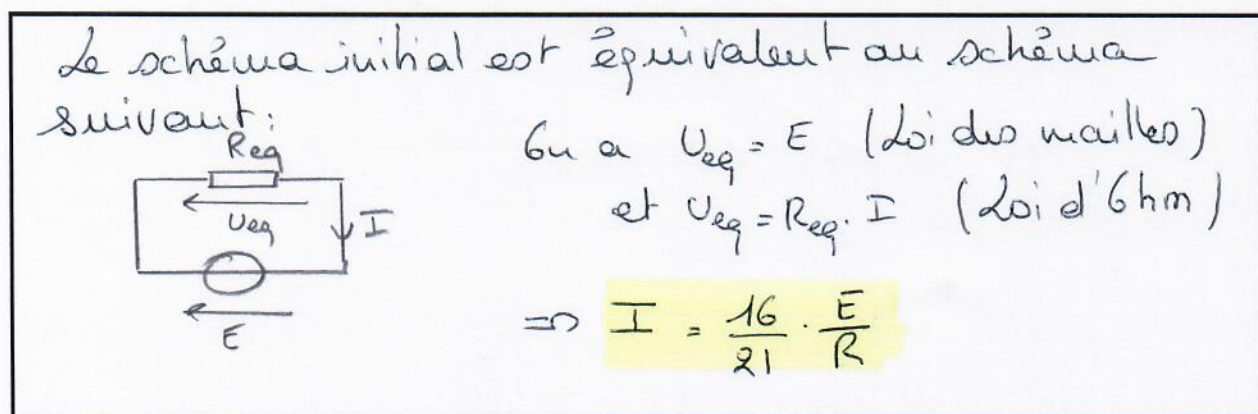 Le schéma initial est équivalent au schéma
suivant:
Req
Ueq
I
E
On a Ueq = E (Loi des mailles)
et Ueq = Req. I (Loi d'Ohm)
=> I = 16/21 . E/R